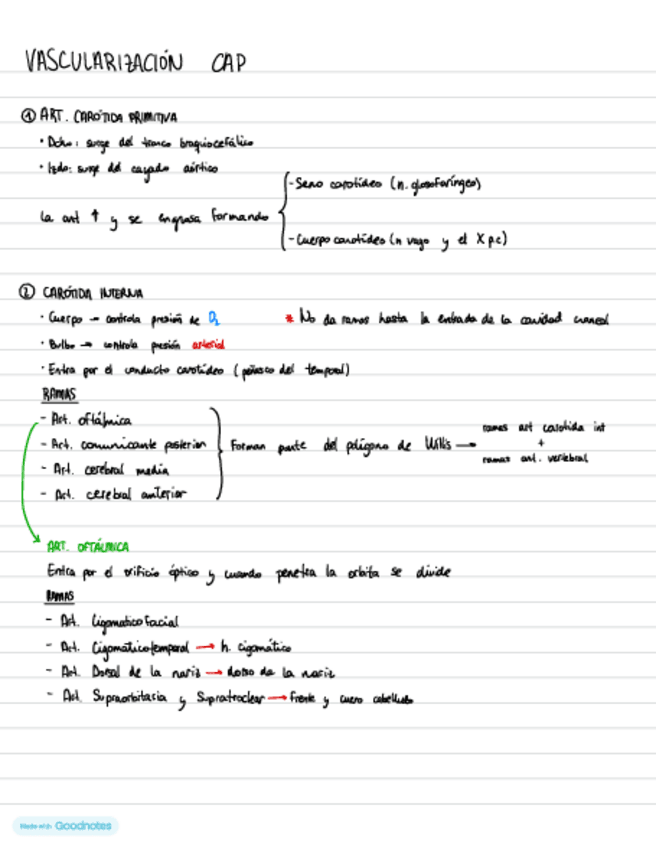 VASCULARIZACIÓN CAP
① ART. CARÓTIDA PRIMITIVA
· Dcha: surge del tronco braquiocefálico
· Izda: surge del cayado aórtico
- Seno carotídeo (n. glosofaríngeo)
la art ↑ y se engrosa formando
- Cuerpo carotídeo (n vago y el X p.c)
② CARÓTIDA INTERNA
· Cuerpo → controla presión de O₂ * No da ramas hasta la entrada de la cavidad craneal
· Bulbo → controla presión arterial
· Entra por el conducto carotídeo (peñasco del temporal)
RAMAS
- Art. oftálmica
- Art. comunicante posterior
- Art. cerebral media
- Art. cerebral anterior
Forman parte del polígono de Willis →
ramas art carotida int
+
ramas art. vertebral
ART. OFTÁLMICA
Entra por el orificio óptico y cuando penetra la orbita se divide
RAMAS
- Art. Cigomatico facial
- Art. Cigomáticotemporal → h. cigomático
- Art. Dorsal de la nariz → dorso de la nariz
- Art. Supraorbitaria y Supratroclear → frente y cuero cabelludo
Made with Goodnotes